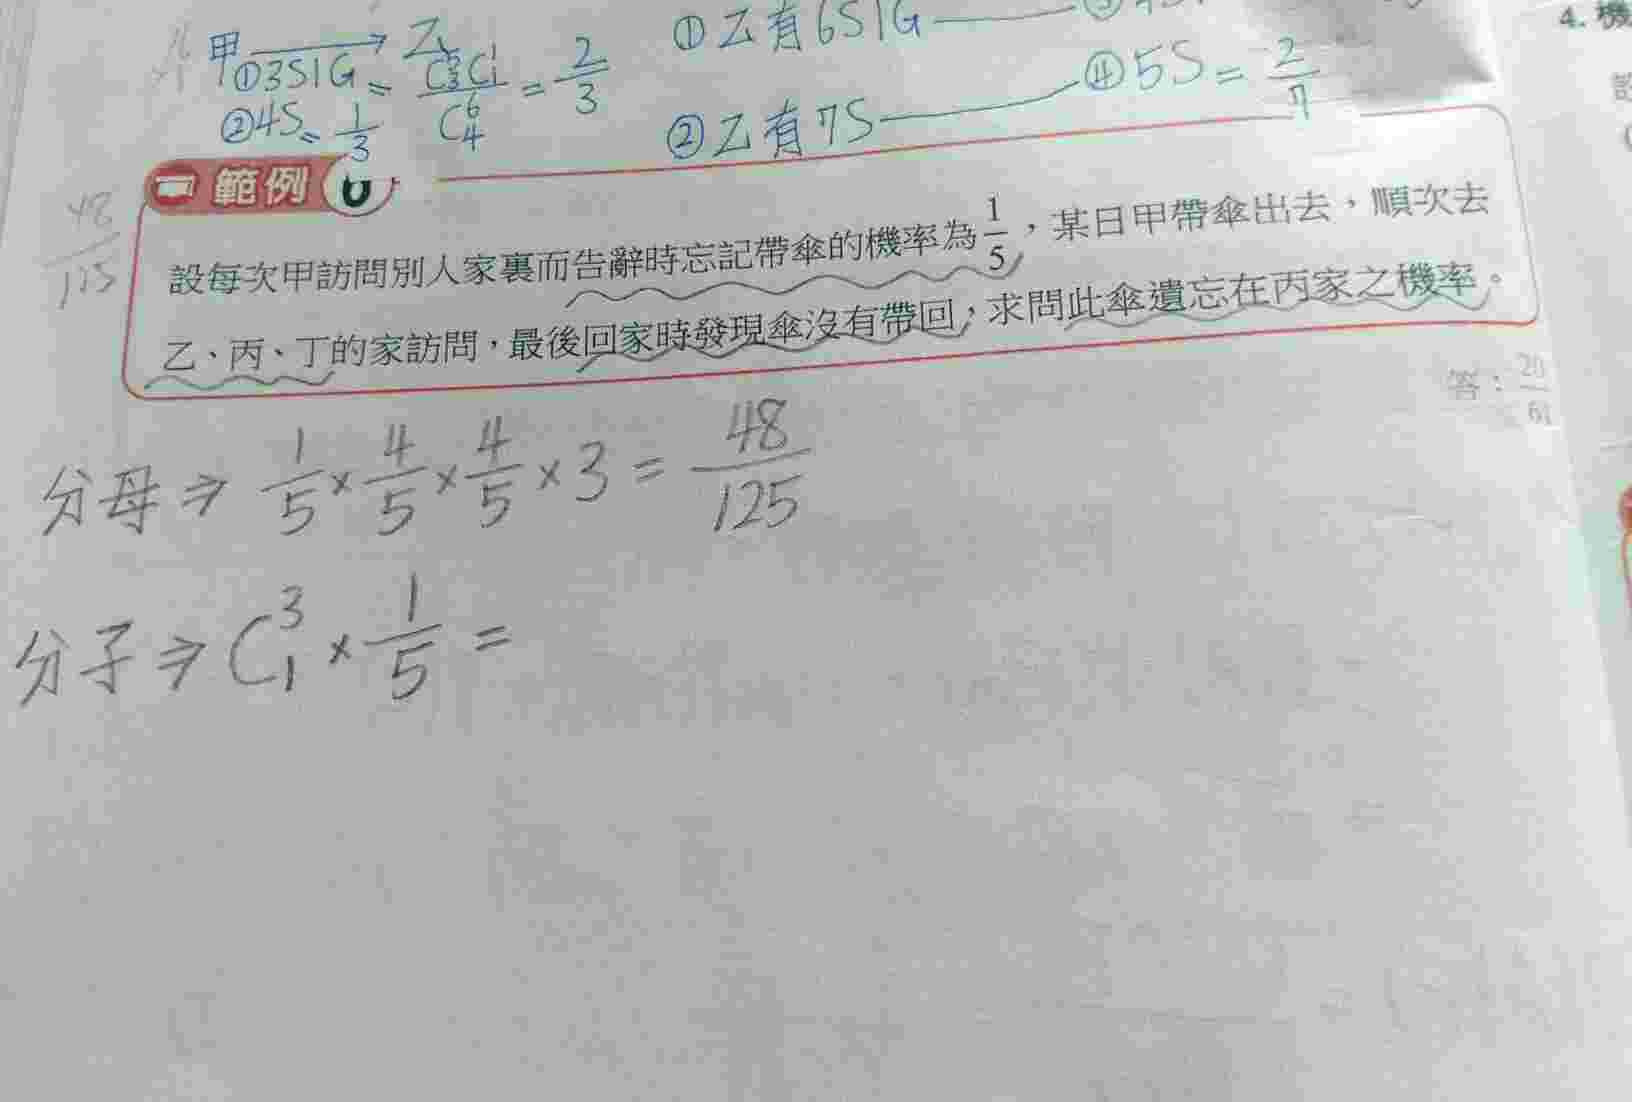 甲 → 乙
①3S1G = C⁵₃C¹₁ / C⁶₄ = 2/3
②4S = 1/3
①乙有6S1G
②乙有7S
④5S = 2/7
4. 機
範例 6
48/125
設每次甲訪問別人家裏而告辭時忘記帶傘的機率為1/5，某日甲帶傘出去，順次去
乙、丙、丁的家訪問，最後回家時發現傘沒有帶回，求問此傘遺忘在丙家之機率。
答：20/61
分母⇒ 1/5 × 4/5 × 4/5 × 3 = 48/125
分子⇒ C³₁ × 1/5 =